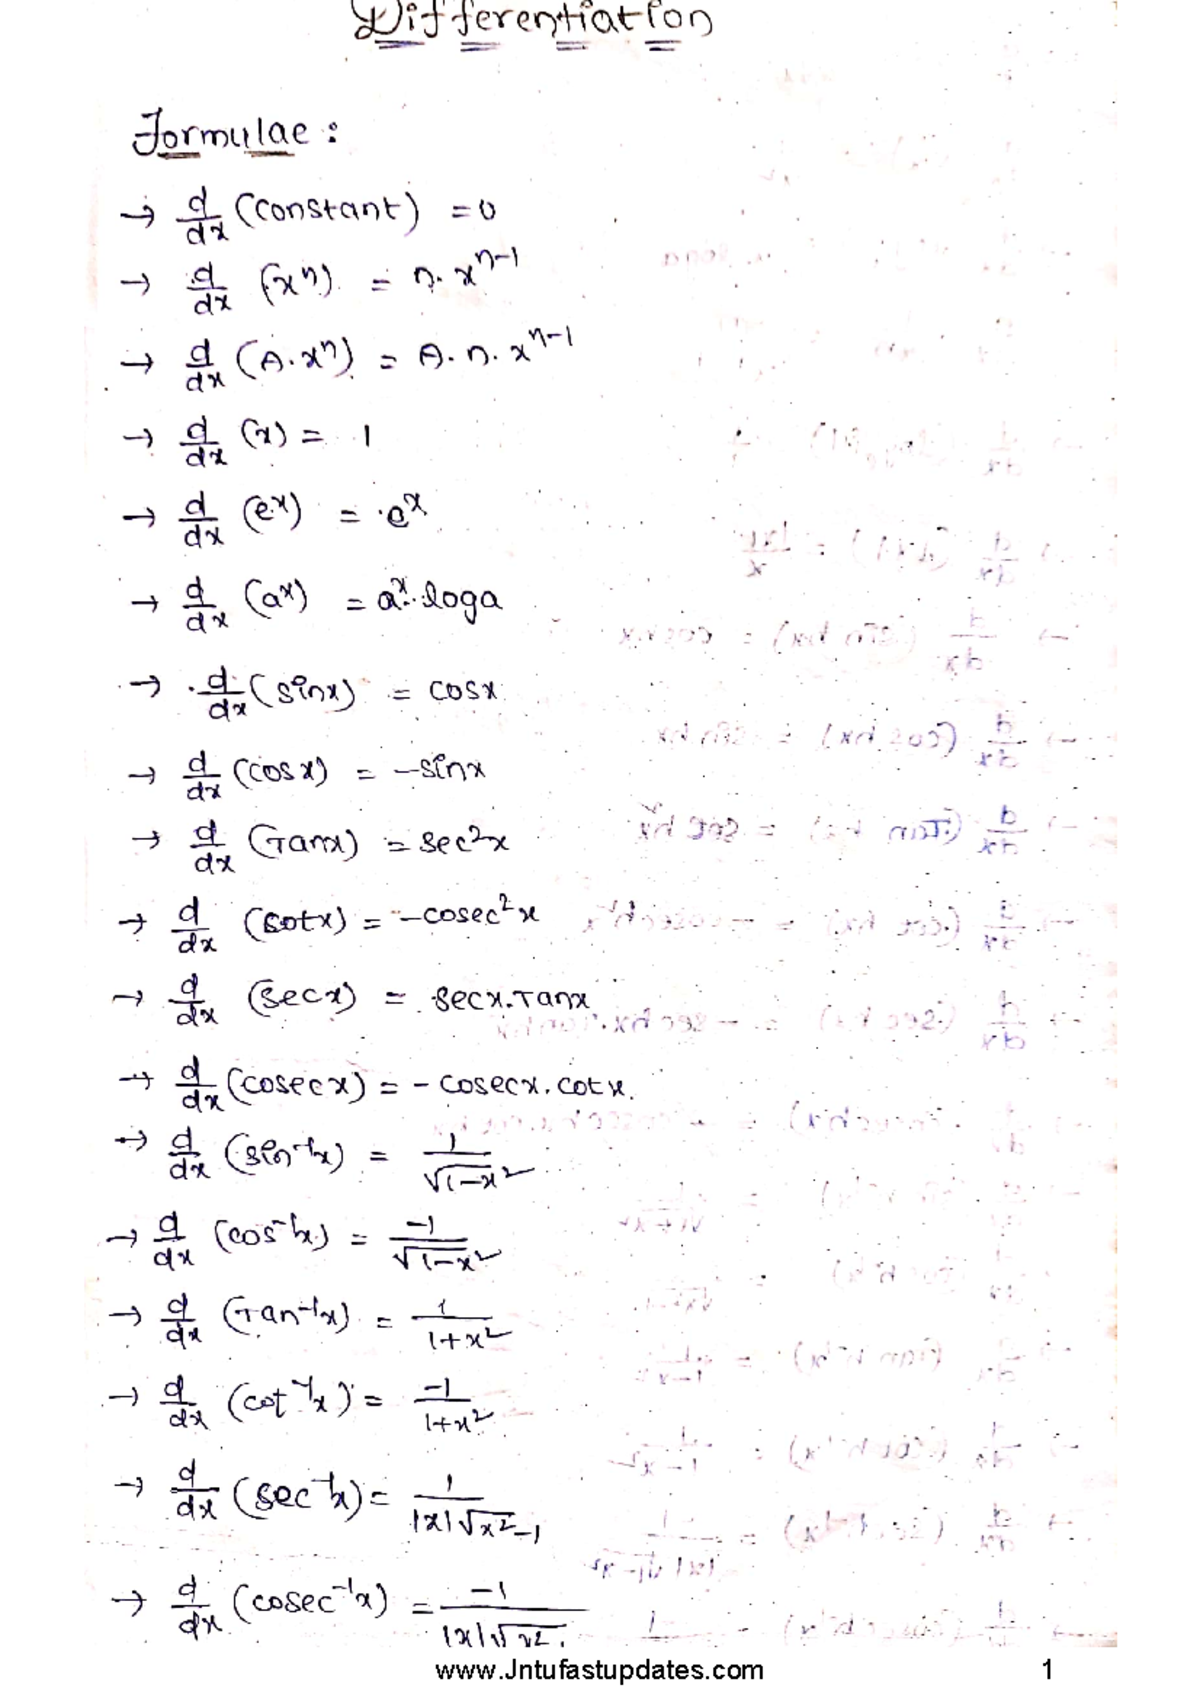 Differentiation
Formulae :
→ d/dx (constant) = 0
→ d/dx (xⁿ) = n. xⁿ⁻¹
→ d/dx (A. xⁿ) = A. n. xⁿ⁻¹
→ d/dx (x) = 1
→ d/dx (eˣ) = eˣ
→ d/dx (aˣ) = aˣ. loga
→ d/dx (sinx) = cosx
→ d/dx (cosx) = -sinx
→ d/dx (Tanx) = sec²x
→ d/dx (cotx) = -cosec²x
→ d/dx (secx) = secx.Tanx
→ d/dx (cosecx) = - cosecx. cotx.
→ d/dx (sin⁻¹x) = 1/√(1-x²)
→ d/dx (cos⁻¹x) = -1/√(1-x²)
→ d/dx (Tan⁻¹x) = 1/(1+x²)
→ d/dx (cot⁻¹x) = -1/(1+x²)
→ d/dx (sec⁻¹x) = 1/(|x|√(x²-1))
→ d/dx (cosec⁻¹x) = -1/(|x|√x²
www.Jntufastupdates.com 1